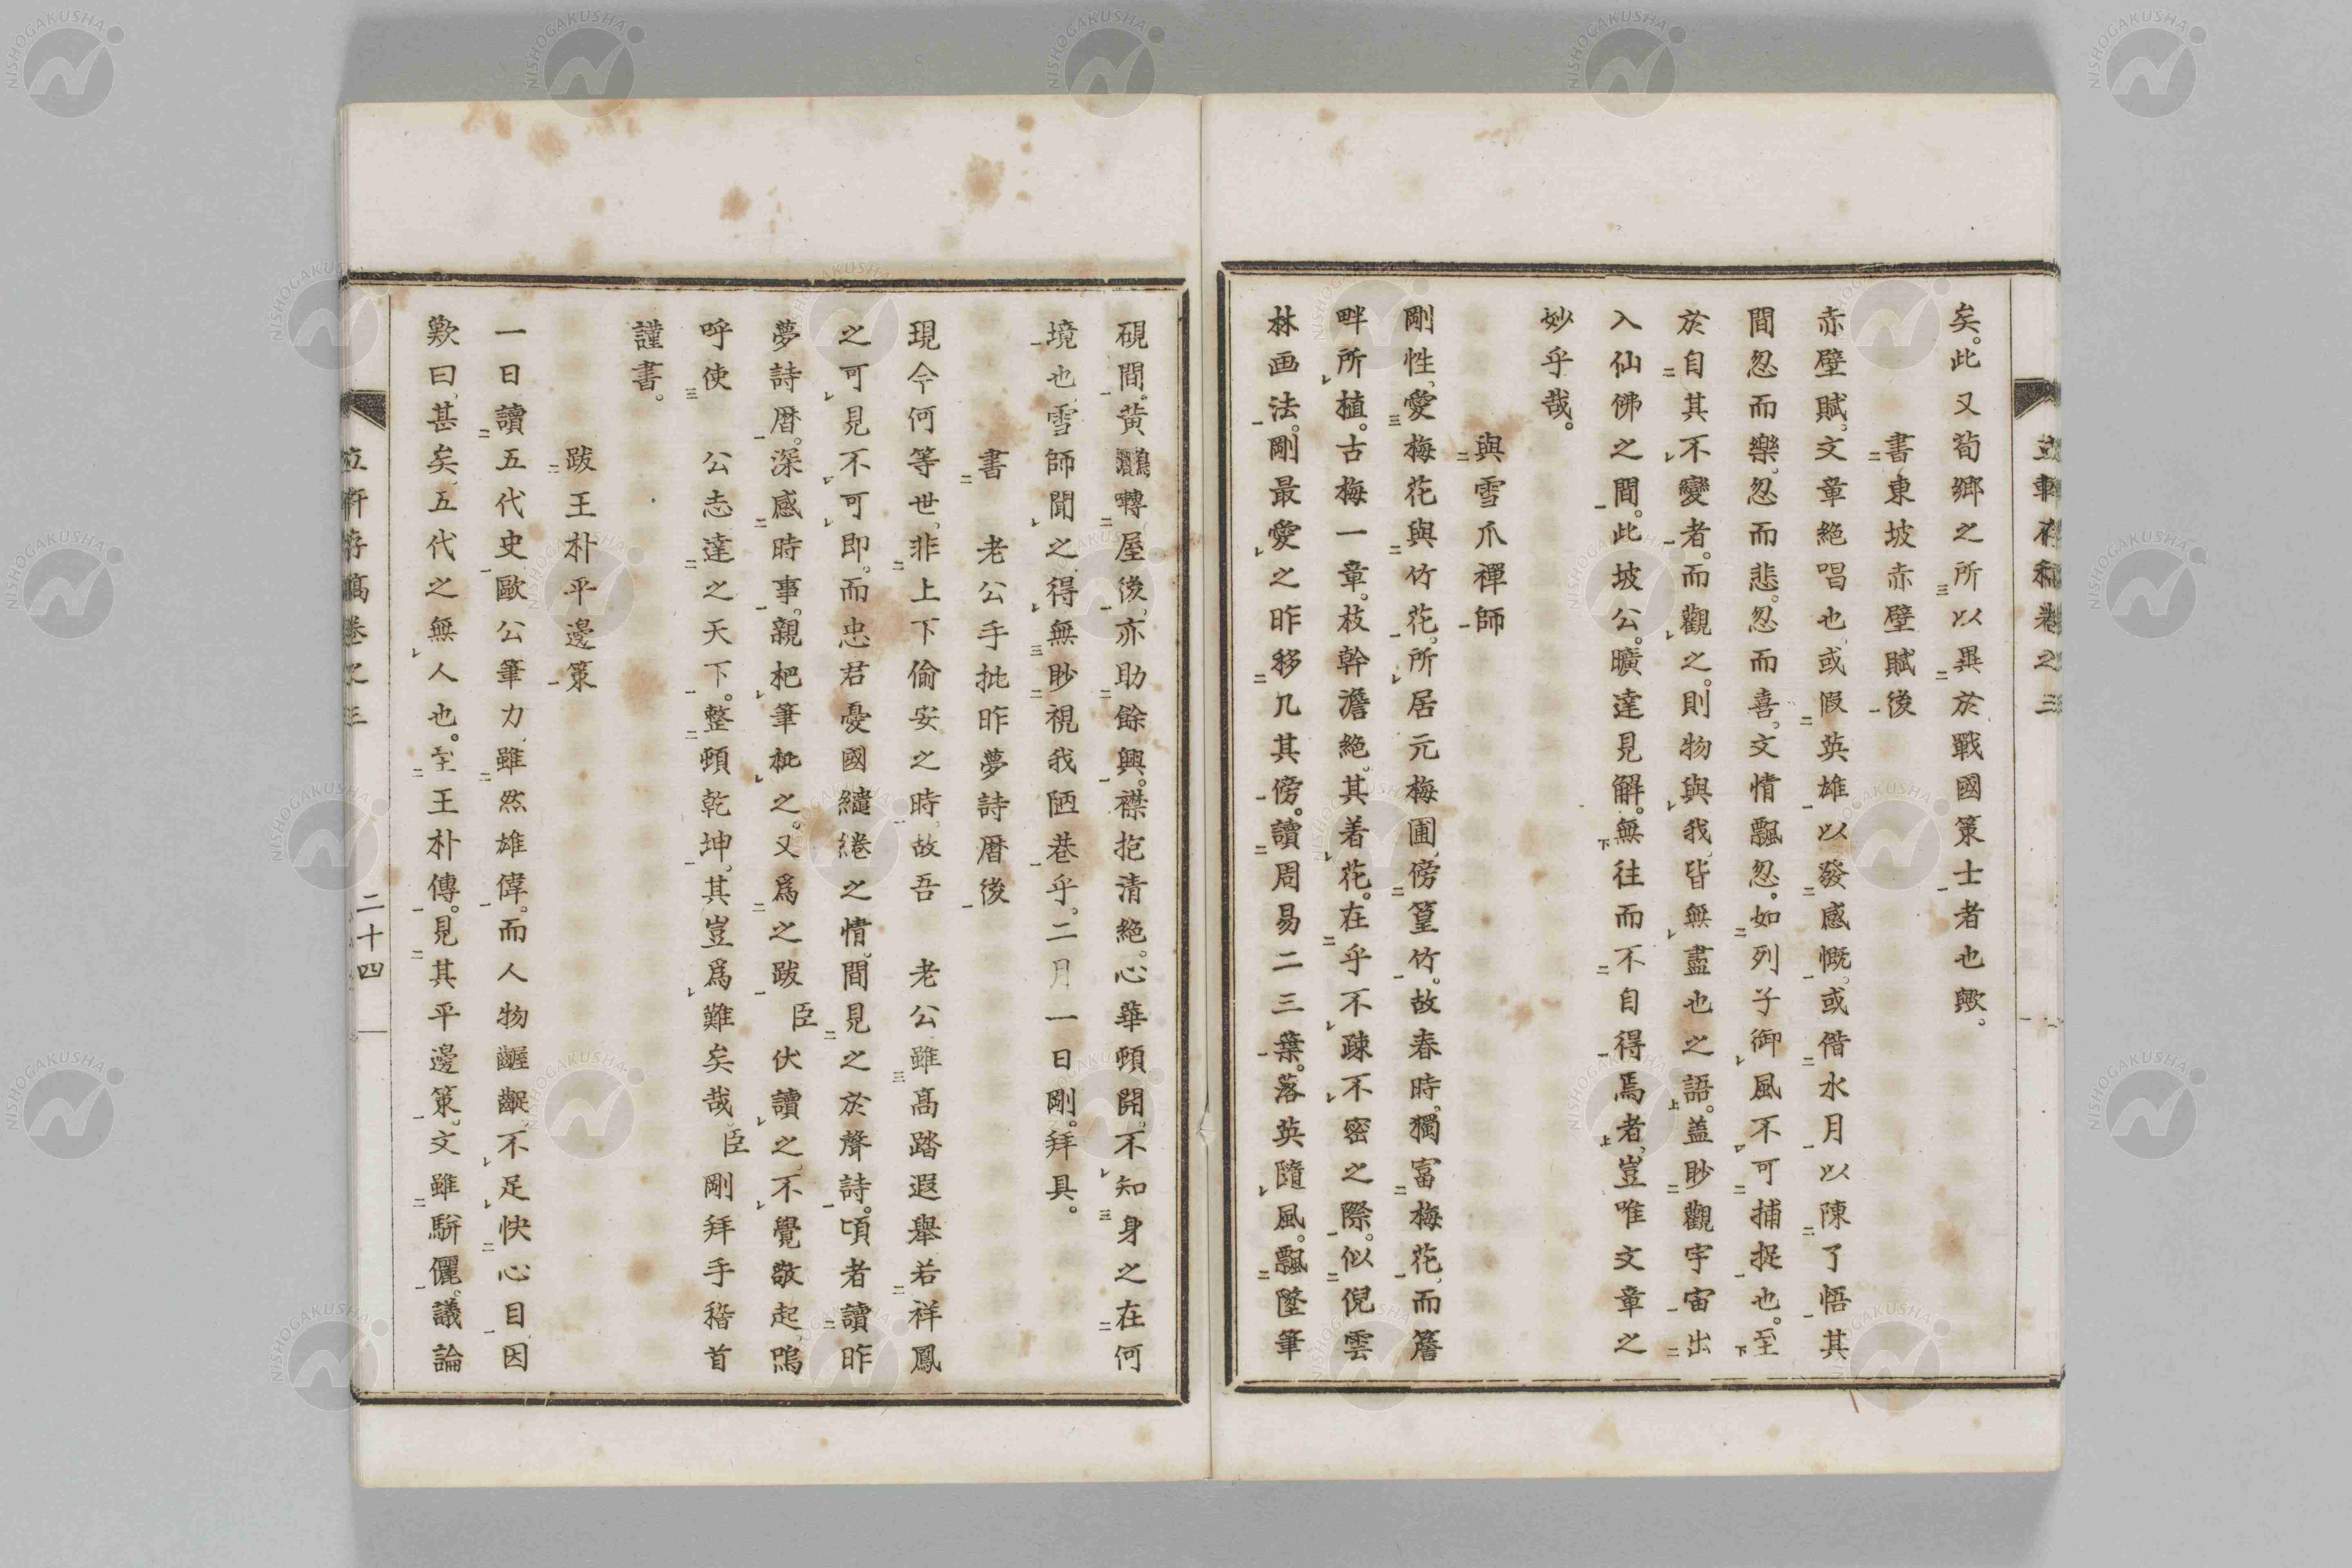 立軒存稿卷之三
矣。此又荀鄕之所以異於戰國策士者也歟。
書東坡赤壁賦後
赤壁賦、文章絕唱也、或假英雄以發感慨、或偕水月以陳了悟其
間忽而樂、忽而悲、忽而喜、文情飄忽。如列子御風不可捕捉也。至
於自其不變者。而觀之。則物與我、皆無盡也之語。蓋眇觀宇宙出
入仙佛之間。此坡公。曠達見解。無往而不自得焉者、豈唯文章之
妙乎哉。
與雪爪禪師
剛性、愛梅花與竹花、所居元梅圃、傍篁竹。故春時。獨富梅花、而簷
畔所植。古梅一章。枝幹澹絕。其着花。在乎不疎不密之際。似倪雲
林画法。剛最愛之昨移几其傍。讀周易二三葉。落英隨風。飄墜筆
硯間。黃鸝囀屋後、亦助餘興。襟抱清絕。心華頓開、不知身之在何
境也、雪師聞之、得無眇視我陋巷乎。二月一日剛。拜具。
書　老公手批昨夢詩曆後
現今何等世、非上下偷安之時、故吾　老公雖高踏遐擧若祥鳳
之可見不可卽。而忠君憂國繾綣之情、間見之於聲詩。頃者讀昨
夢詩曆。深感時事。親杷筆枇之。又爲之跋　臣伏讀之、不覺敬起。嗚
呼使　公志達之天下。整頓乾坤。其豈爲難矣哉、臣剛拜手稽首
謹書。
跋王朴平邊策
一日讀五代史、歐公筆力、雖然雄偉。而人物齷齪、不足快心目因
歎曰、甚矣、五代之無人也。至王朴傳。見其平邊策。文雖駢儷。議論
立軒存稿卷之三　二十四
NISHOGAKUSHA